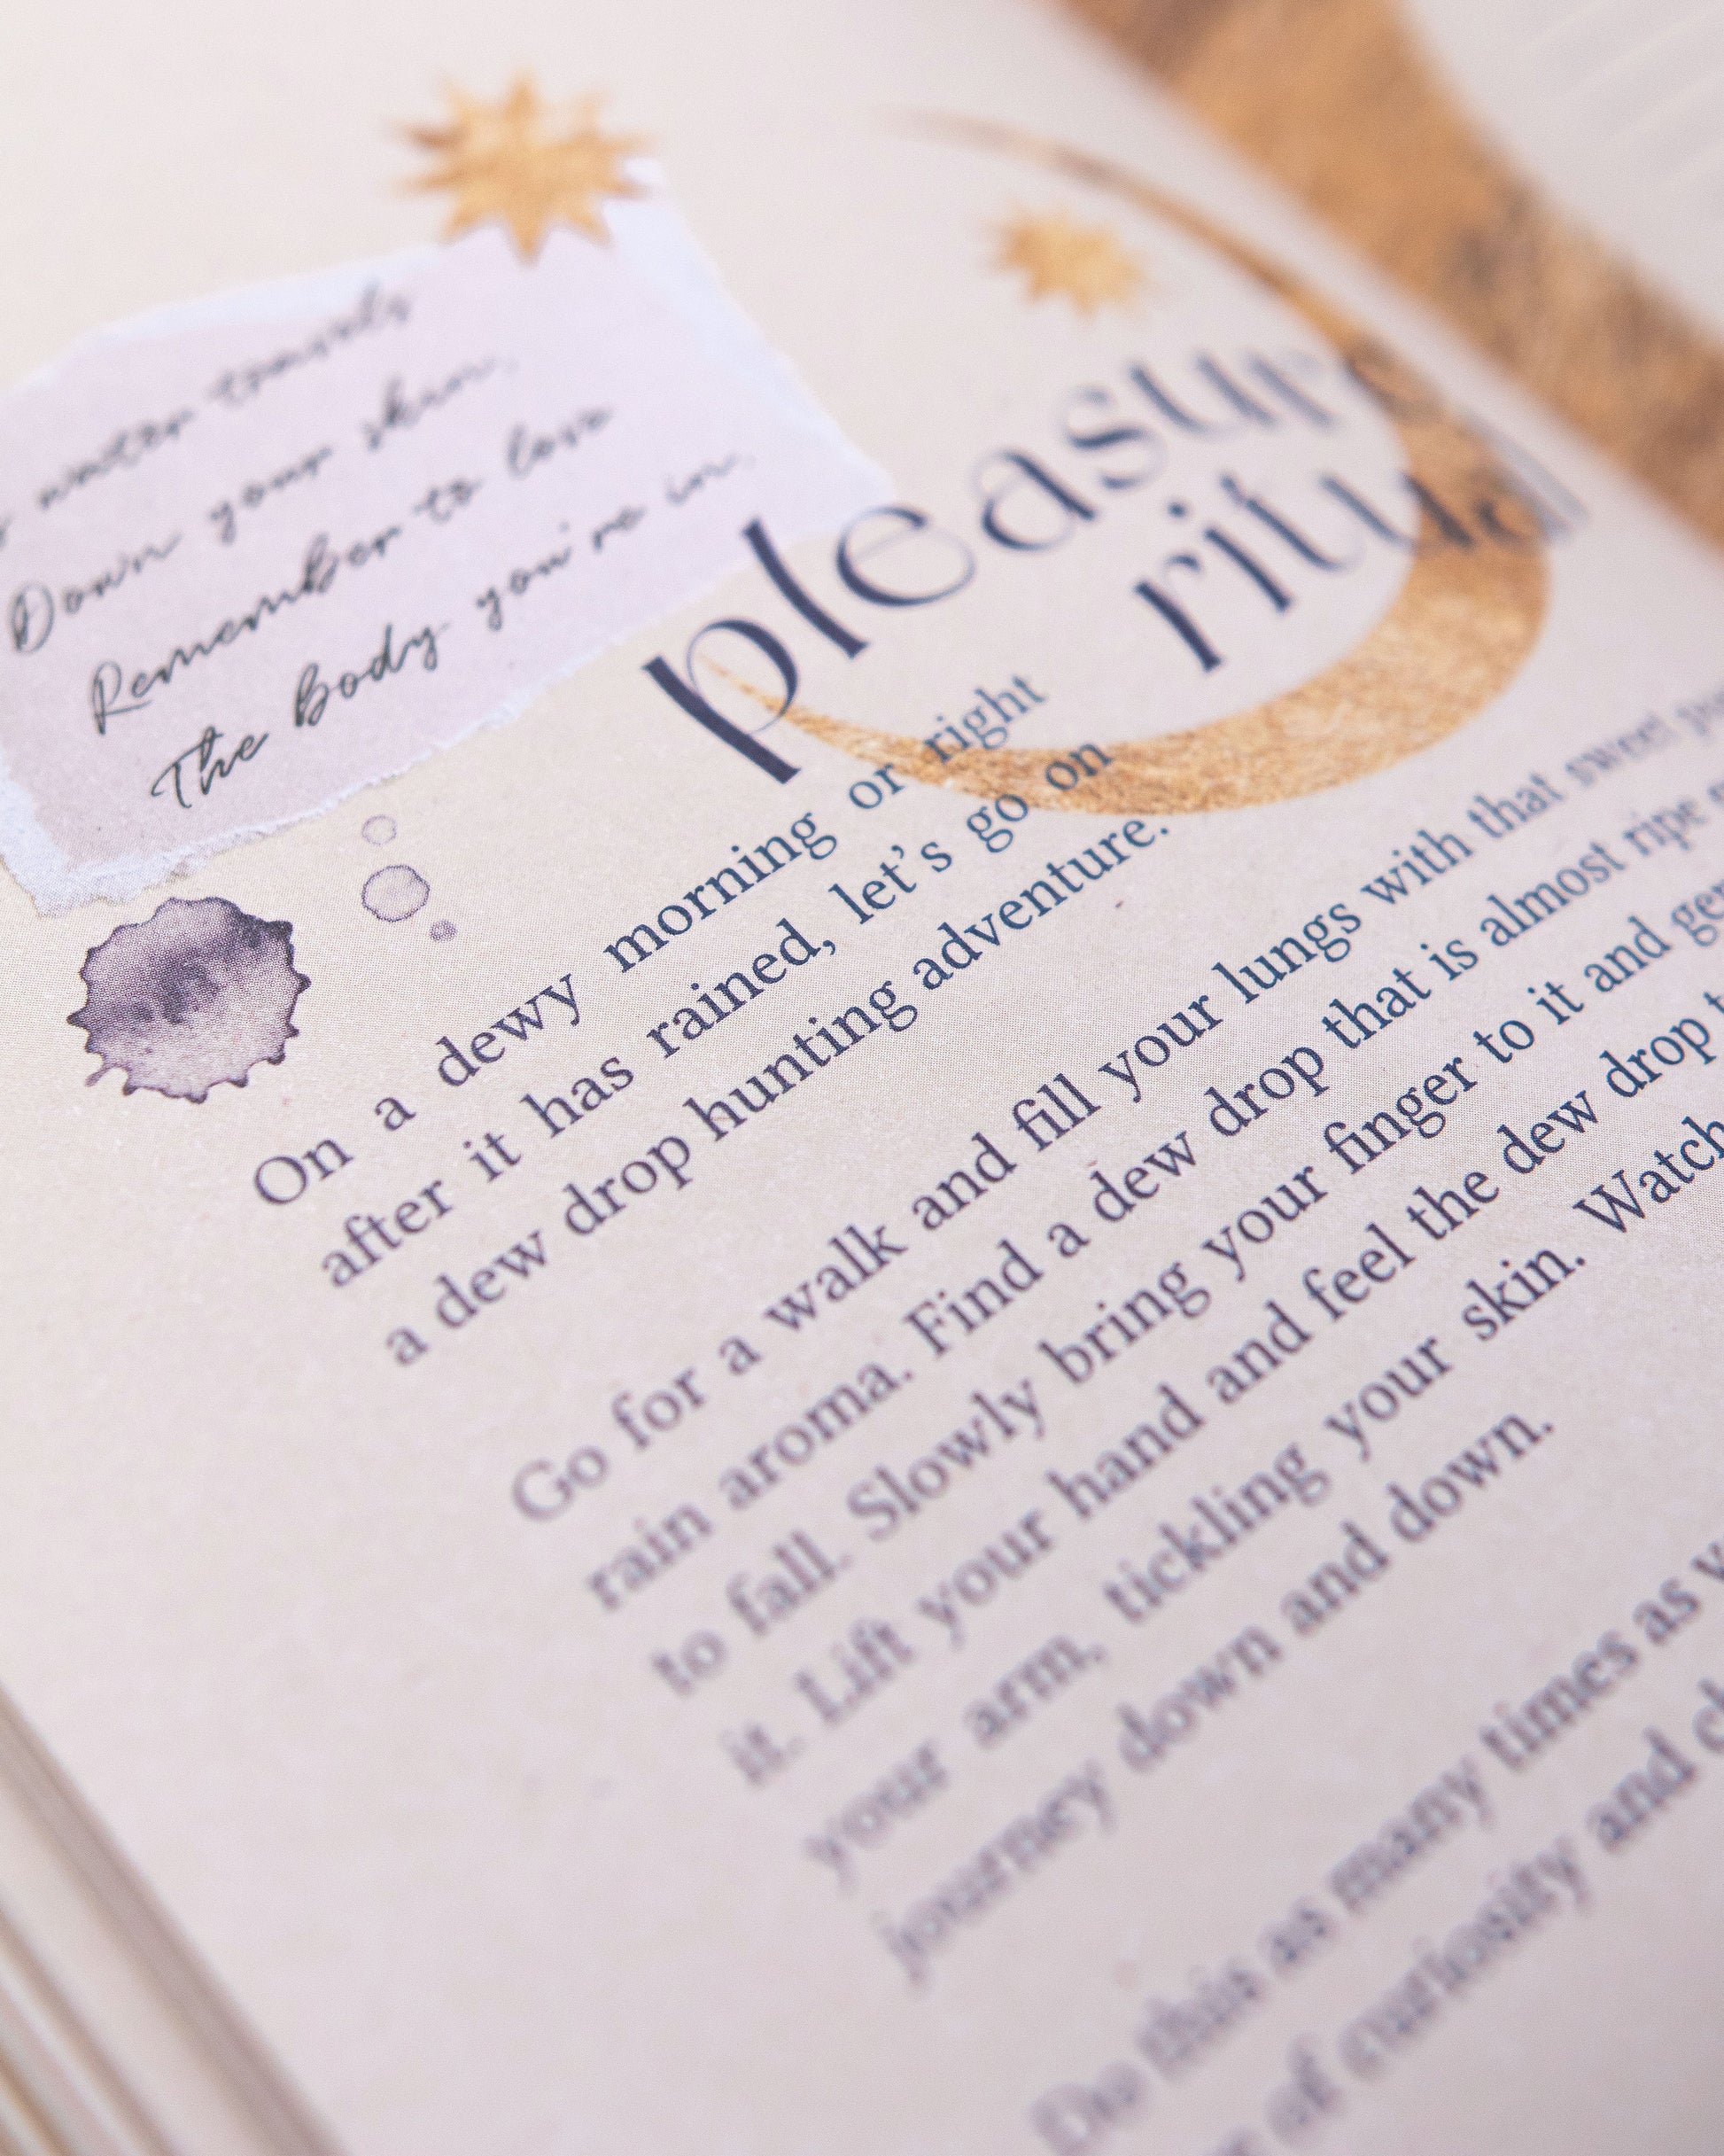 water travels
Down your skin.
Remember to love
The Body you're in.
pleasure
ritual
On a dewy morning or right
after it has rained, let's go on
a dew drop hunting adventure.
Go for a walk and fill your lungs with that sweet
rain aroma. Find a dew drop that is almost ripe
to fall. Slowly bring your finger to it and
it. Lift your hand and feel the dew drop
your arm, tickling your skin. Watch
journey down and down.
Do this as many times as
of curiosity and